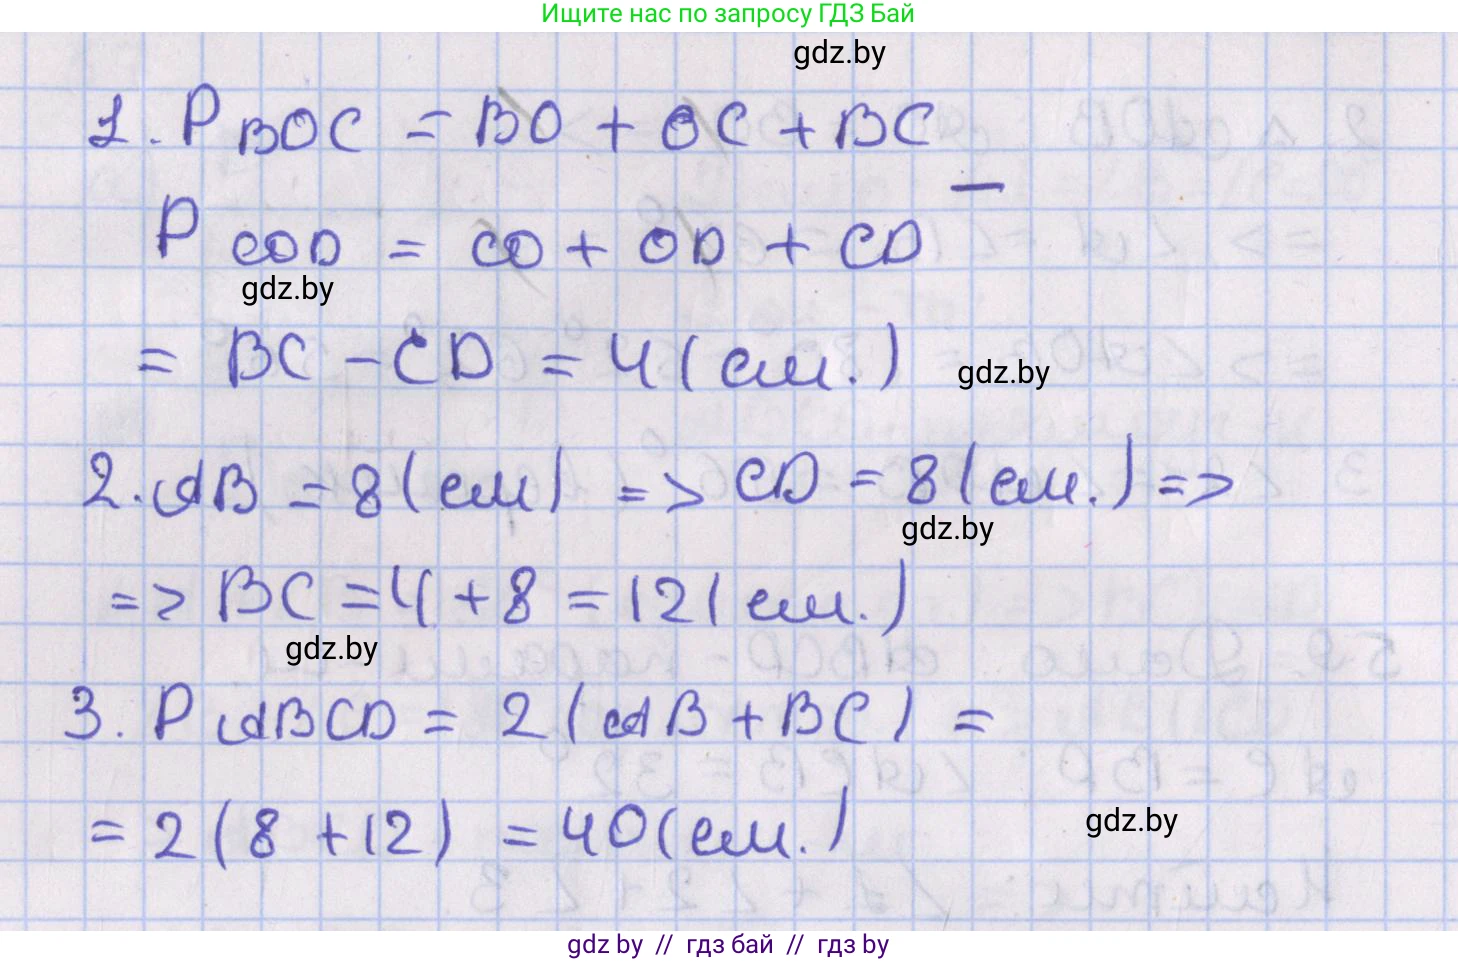 Ищите нас по запросу ГДЗ Бай
gdz.by
1. P BOC = BO + OC + BC
—
P COD = CO + OD + CD
gdz.by
= BC - CD = 4 (см.)
gdz.by
2. AB = 8 (см) => CD = 8 (см.) =>
gdz.by
=> BC = 4 + 8 = 12 (см.)
gdz.by
3. P ABCD = 2 (AB + BC) =
= 2 (8 + 12) = 40 (см.)
gdz.by
gdz by // гдз бай // гдз by